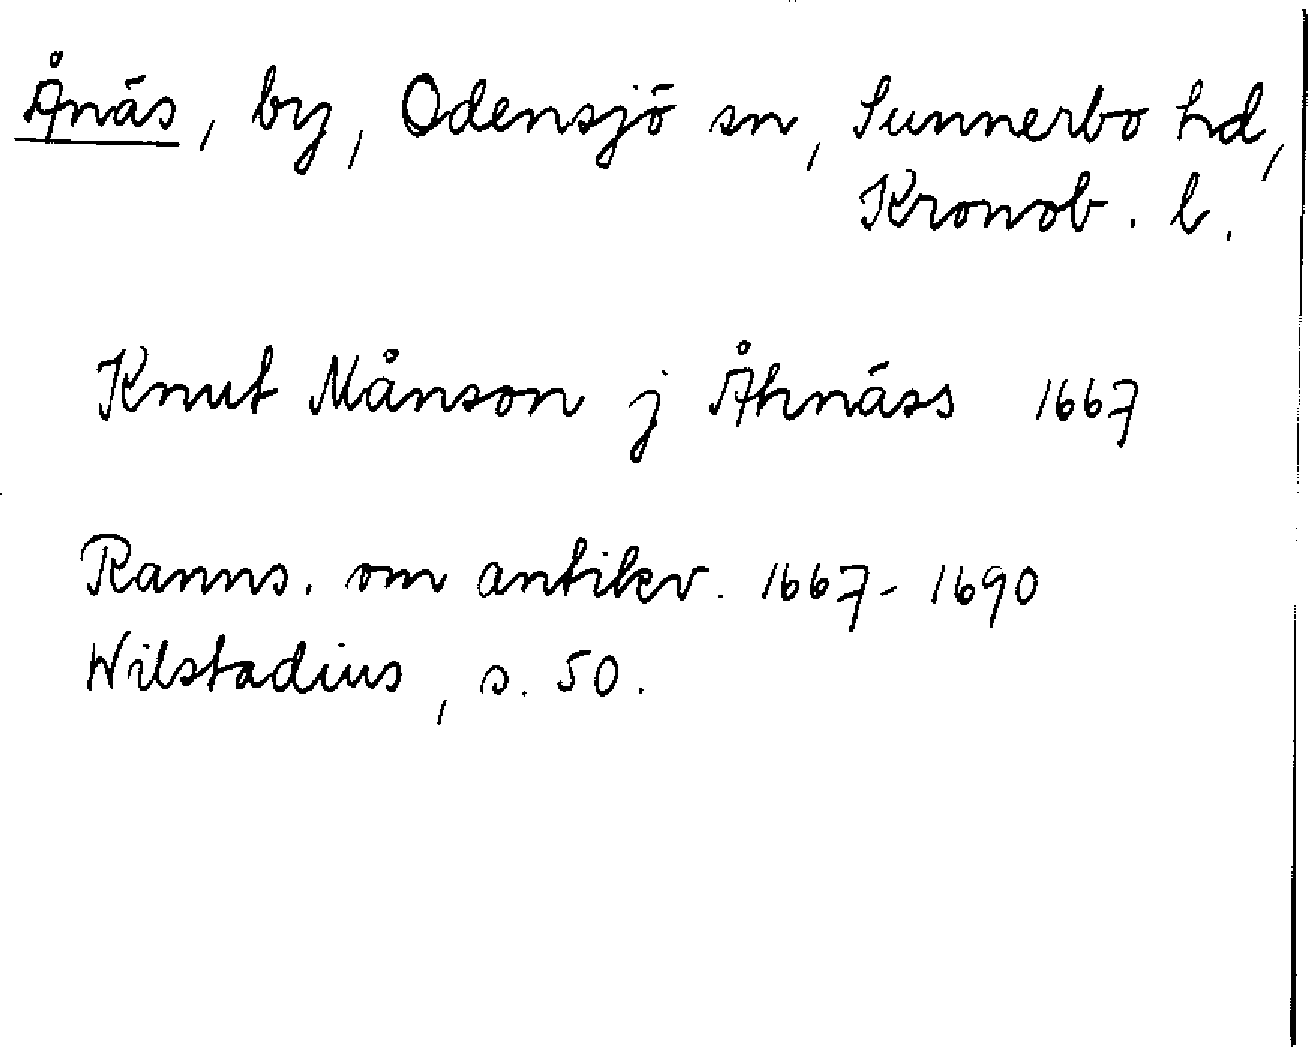 Ånäs, by, Odensjö sn, Sunnerbo hd,
Kronob. l.
Knut Månson j Åhnäss 1667
Ranns. om antikv. 1667-1690
Wilstadius, s. 50.